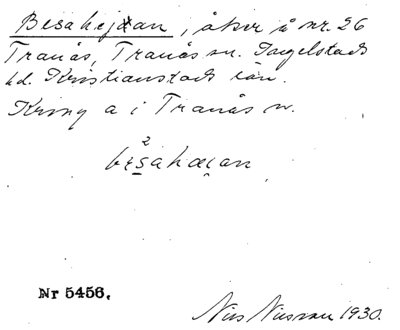 Besahejan, åker å nr. 26
Tranås, Tranås sn. Ingelstads
hd. Kristianstads län.
Kring a i Tranås sn.
2
besahæjan
Nr 5456.
Nils Nilsson 1930.